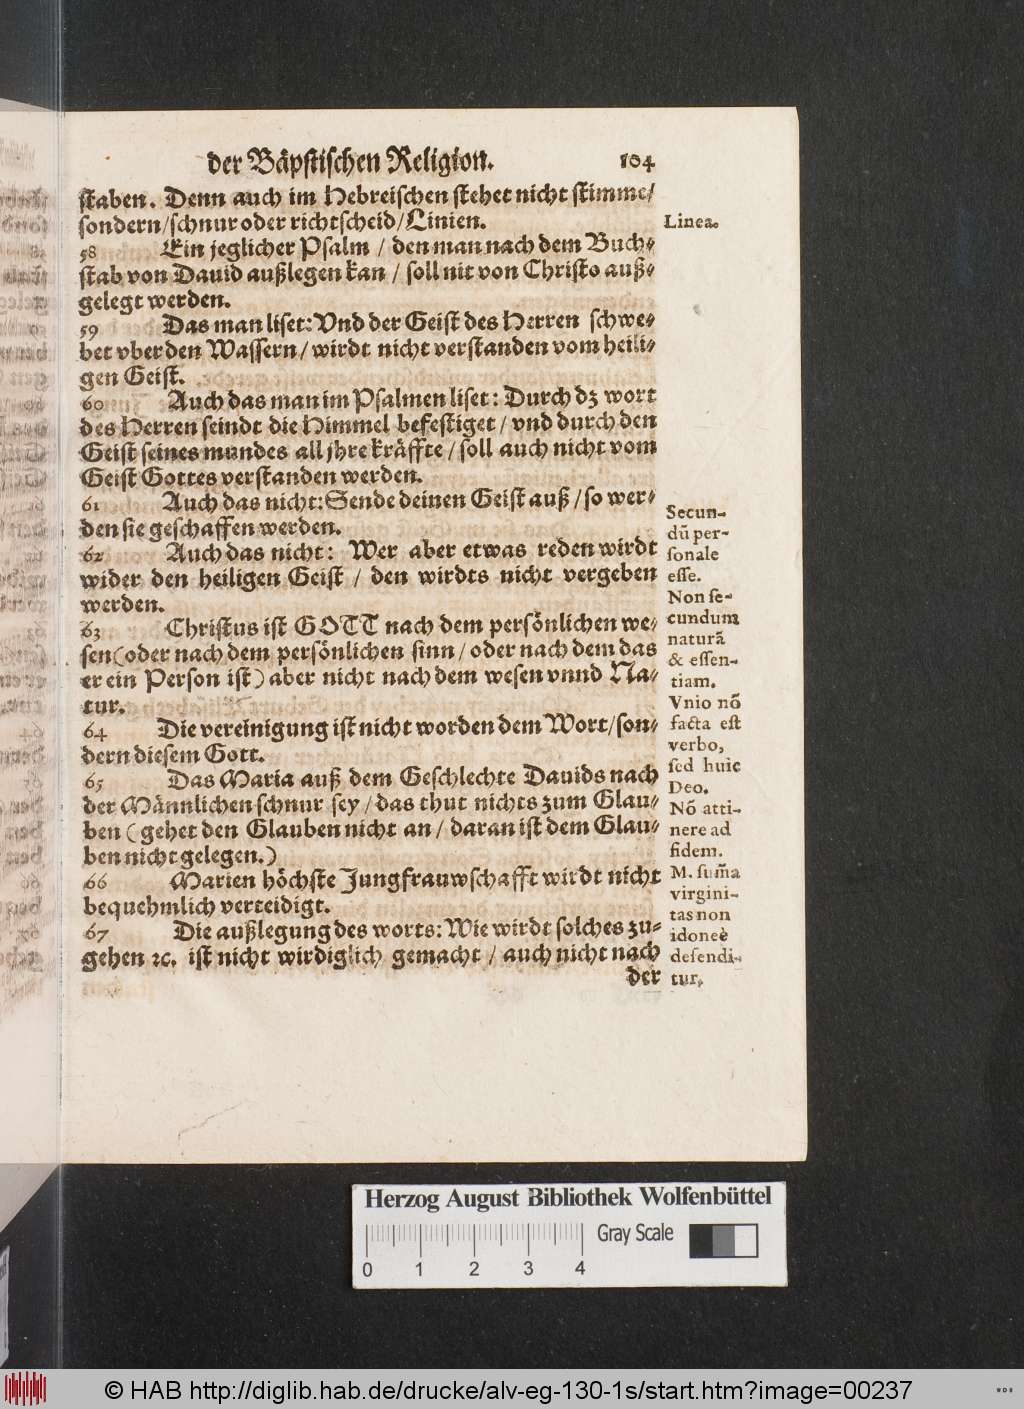 der Bäpstischen Religion. 104
staben. Denn auch im Hebreischen stehet nicht stimme/
sondern/schnur oder richtscheid/Linien.
Linea.
58 Ein jeglicher Psalm / den man nach dem Buch-
stab von Dauid außlegen kan / soll nit von Christo auß-
gelegt werden.
59 Das man liset: Vnd der Geist des Herren schwe-
bet vber den Wassern/wirdt nicht verstanden vom heili-
gen Geist.
60 Auch das man im Psalmen liset: Durch dz wort
des Herren seindt die Himmel befestiget / vnd durch den
Geist seines mundes all jhre kräffte / soll auch nicht vom
Geist Gottes verstanden werden.
61 Auch das nicht: Sende deinen Geist auß / so wer-
den sie geschaffen werden.
62 Auch das nicht: Wer aber etwas reden wirdt
wider den heiligen Geist / den wirdts nicht vergeben
werden.
63 Christus ist GOTT nach dem persönlichen we-
sen (oder nach dem persönlichen sinn / oder nach dem das
er ein Person ist) aber nicht nach dem wesen vnnd Na-
tur.
64 Die vereinigung ist nicht worden dem Wort/son-
dern diesem Gott.
65 Das Maria auß dem Geschlechte Dauids nach
der Männlichen schnur sey / das thut nichts zum Glau-
ben (gehet den Glauben nicht an / daran ist dem Glau-
ben nicht gelegen.)
66 Marien höchste Jungfrauwschafft wirdt nicht
bequehmlich verteidigt.
67 Die außlegung des worts: Wie wirdt solches zu-
gehen ꝛc. ist nicht wirdiglich gemacht / auch nicht nach
der
Secun-
dũ per-
sonale
esse.
Non se-
cundum
naturã
& essen-
tiam.
Vnio nõ
facta est
verbo,
sed huic
Deo.
Nõ atti-
nere ad
fidem.
M. sum̃a
virgini-
tas non
idoneè
defendi-
tur.
Herzog August Bibliothek Wolfenbüttel
0 1 2 3 4
Gray Scale
© HAB http://diglib.hab.de/drucke/alv-eg-130-1s/start.htm?image=00237